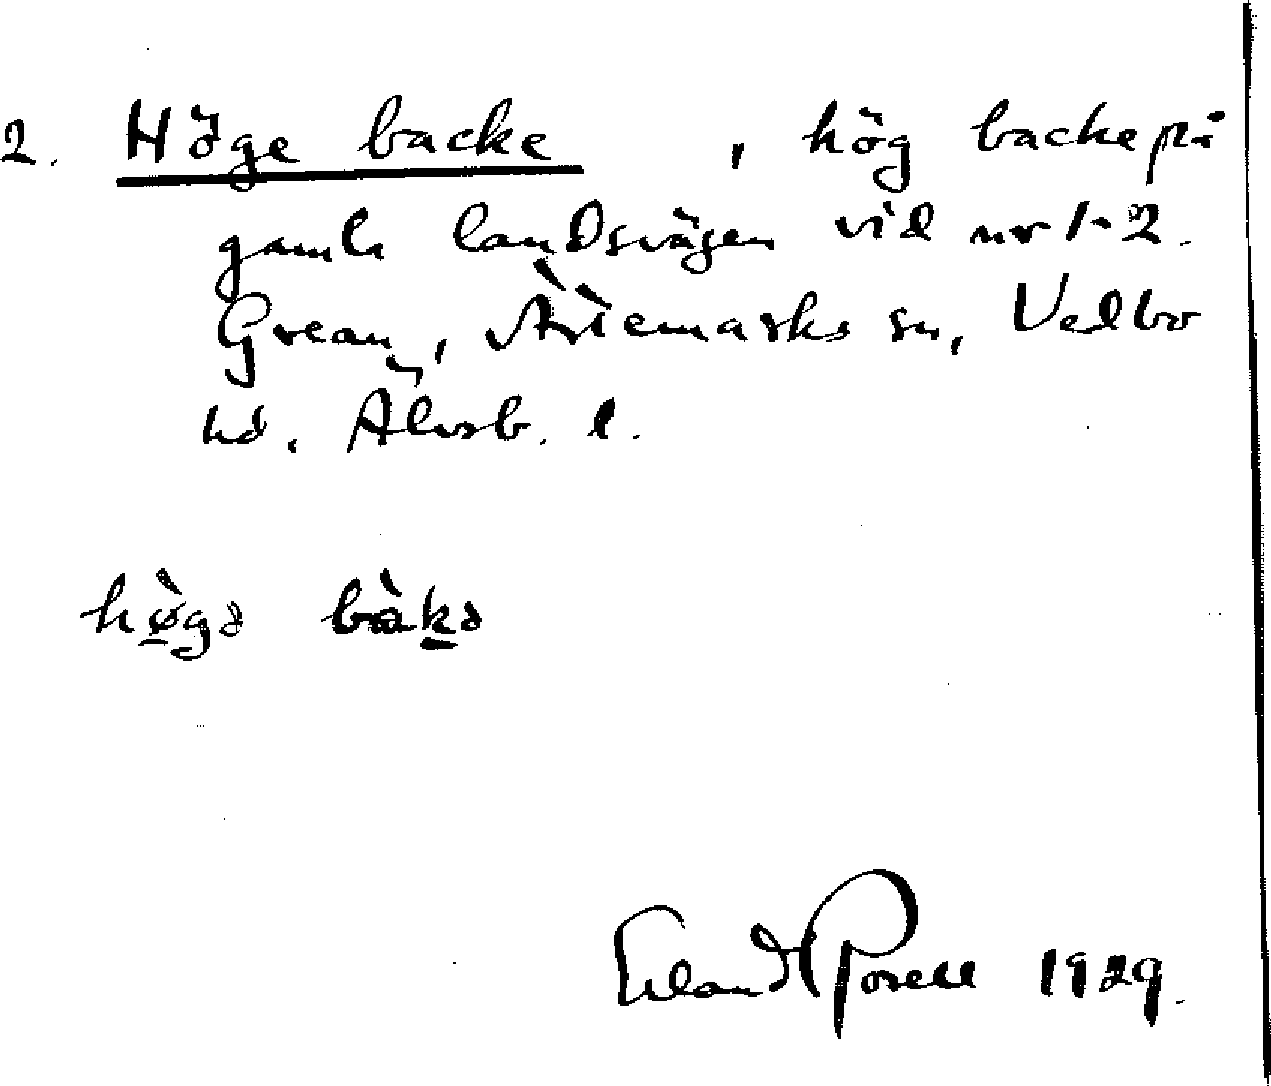 2. Höge backe, hög backe på
gamla landsvägen vid nr 1-2.
Grean, Ärtemarks sn, Vedbo
hd. Älvsb. l.
hø̀gə bàkə
Erland Rosell 1929.